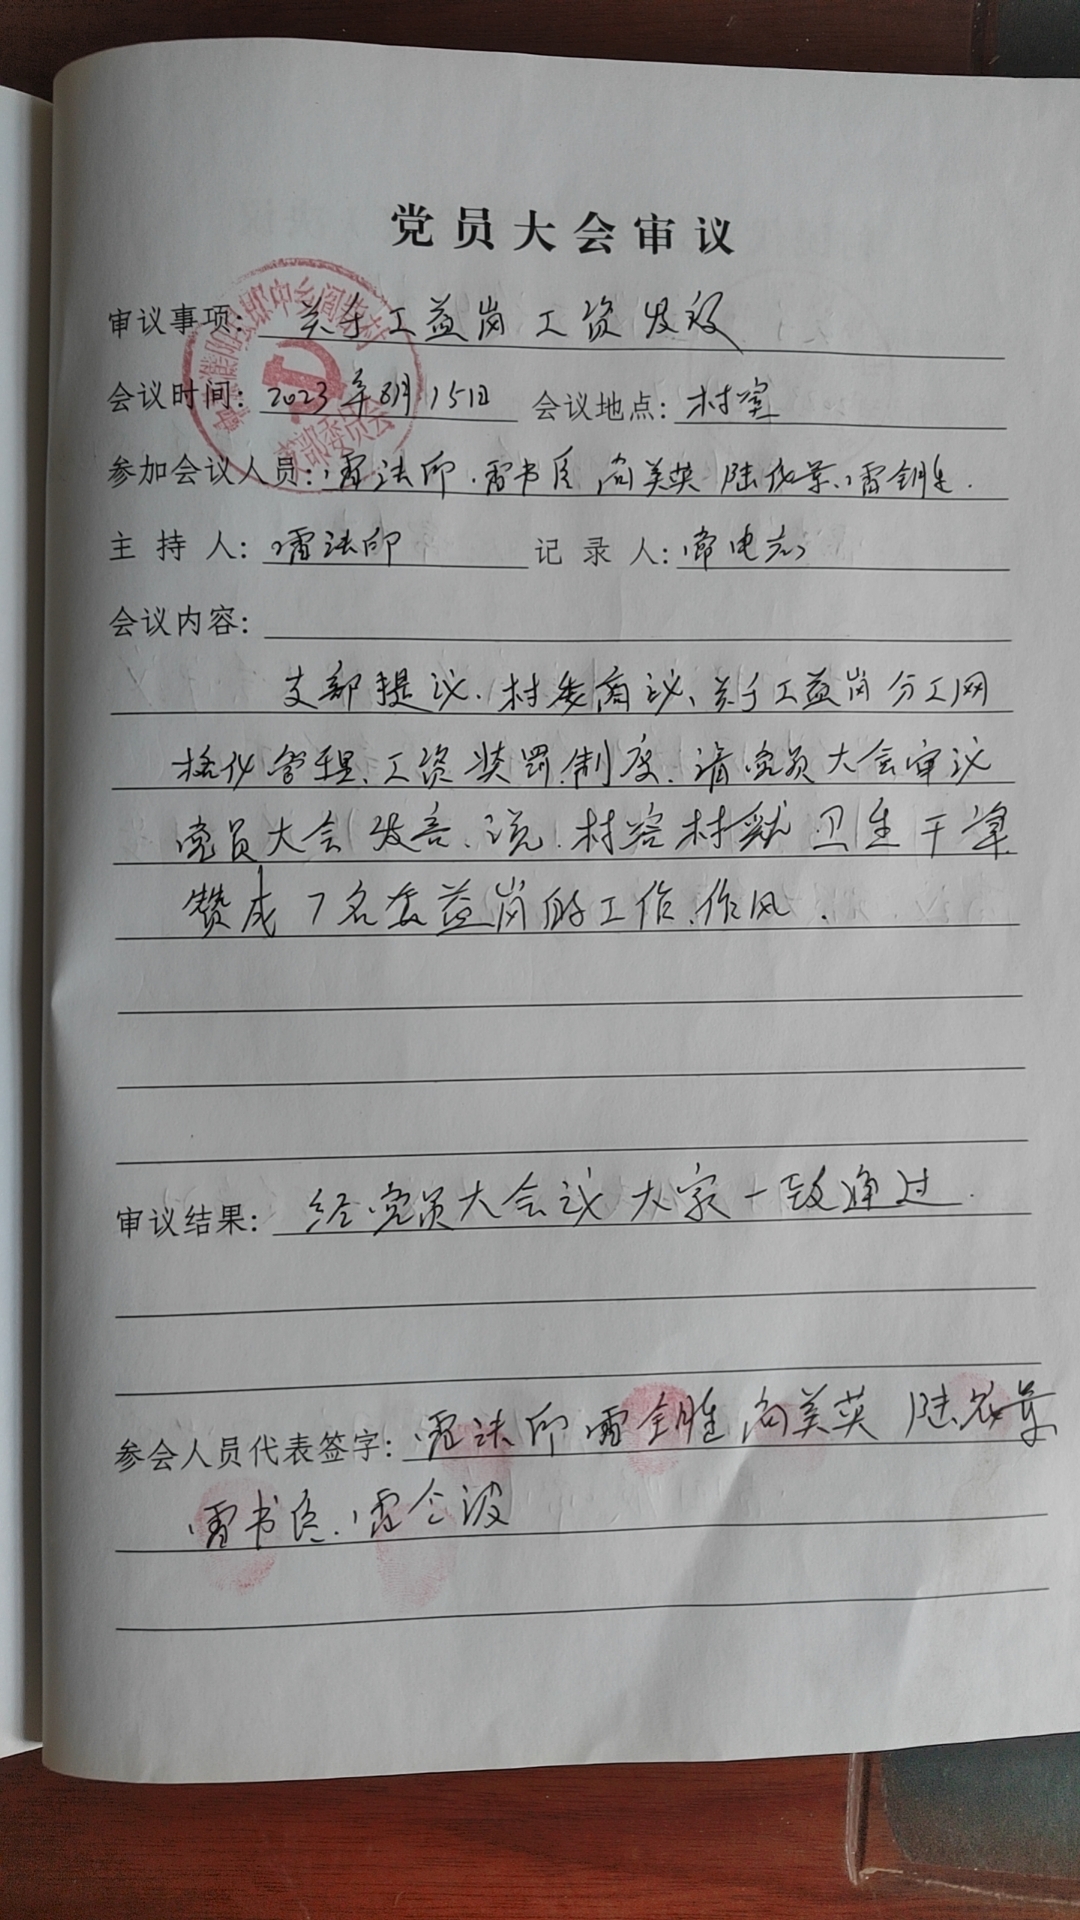 党员大会审议
审议事项: 关于工益岗工资发放
会议时间: 2023年8月15日 会议地点: 村室
参加会议人员: 雷法印.雷书臣 尚美英 陆
主持人: 雷法印 记录人: 常电志
会议内容:
支部提议.村委商议、关于工益岗分工网
格化管理、工资奖罚制度.请党员大会审议
党员大会发言.说.村容村貌卫生干净
赞成7名 益岗的工作.作风.
审议结果: 经党员大会议大家一致通过.
参会人员代表签字: 雷法印 雷全胜 尚美英 陆
雷书臣.雷
支部委员会